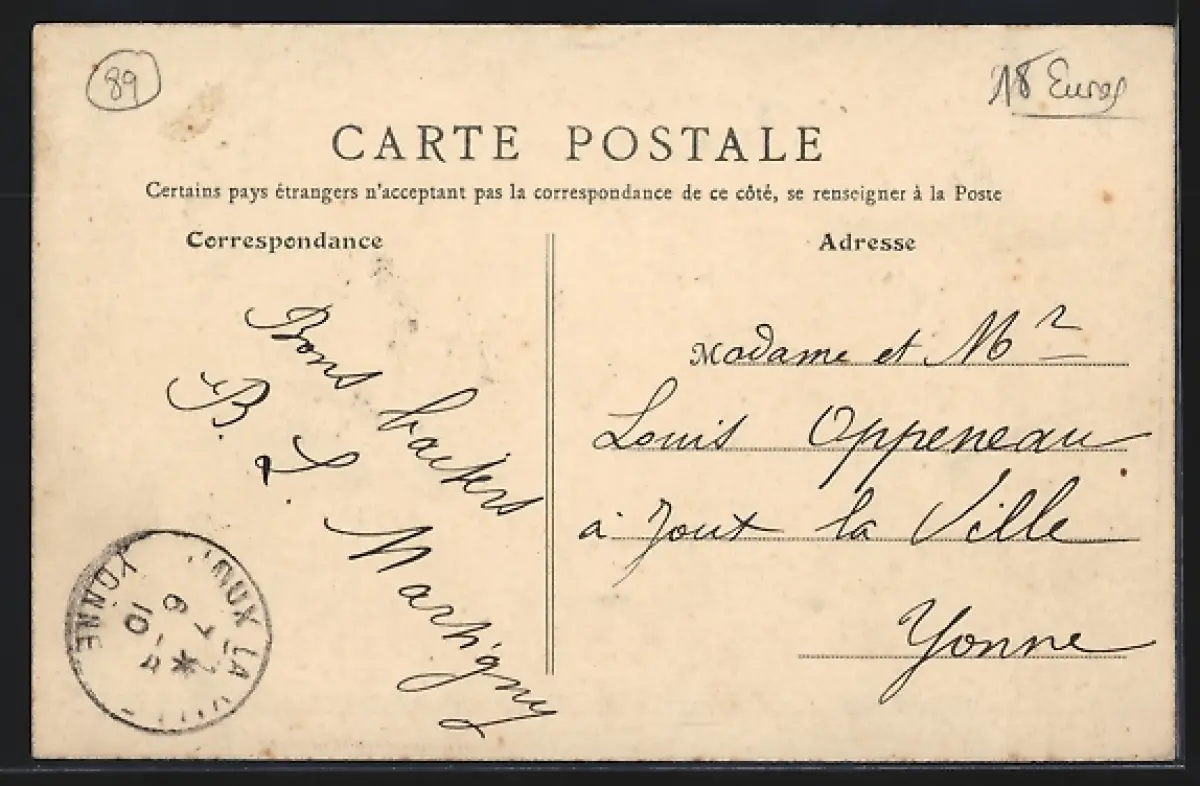 89
18 Euros
CARTE POSTALE
Certains pays étrangers n'acceptant pas la correspondance de ce côté, se renseigner à la Poste
Correspondance
Bons baisers
B. L. Martigny
Adresse
Madame et Mr
Louis Oppeneau
à Joux la Ville
Yonne
JOUX LA VILLE
YONNE